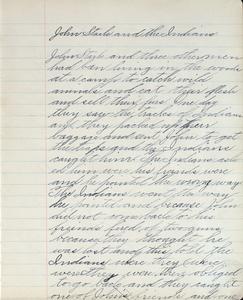 John Slade and the Indians
John Slade and three other men
had been living in the woods
at a camp to catch wild
animals and eat their flesh
and sell their furs. One day
they saw the tracks of Indians
and they packed
baggage and sent John to get
the traps and the Indians
caught him. The Indians ask
ed him were his friends were
and he pointed the wrong way
the Indians went the way
he pointed and because John
did not come back to his
friends fired
because they thought he
was lost and this told the
Indians where they
were they were obliged
to go back and they caught
one of John's friends and